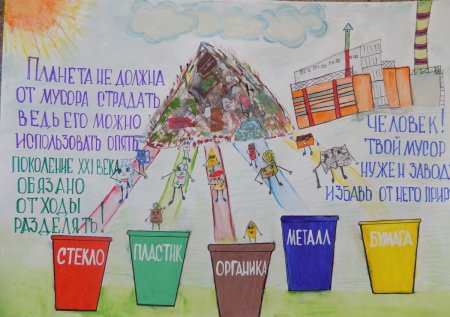 ПЛАНЕТА НЕ ДОЛЖНА
ОТ МУСОРА СТРАДАТЬ
ВЕДЬ ЕГО МОЖНО
ИСПОЛЬЗОВАТЬ ОПЯТЬ
ПОКОЛЕНИЕ XXI ВЕКА
ОБЯЗАНО
ОТХОДЫ
РАЗДЕЛЯТЬ
ЧЕЛОВЕК!
ТВОЙ МУСОР
НУЖЕН ЗАВОДУ
ИЗБАВЬ ОТ НЕГО ПРИР
СТЕКЛО
ПЛАСТИК
ОРГАНИКА
МЕТАЛЛ
БУМАГА